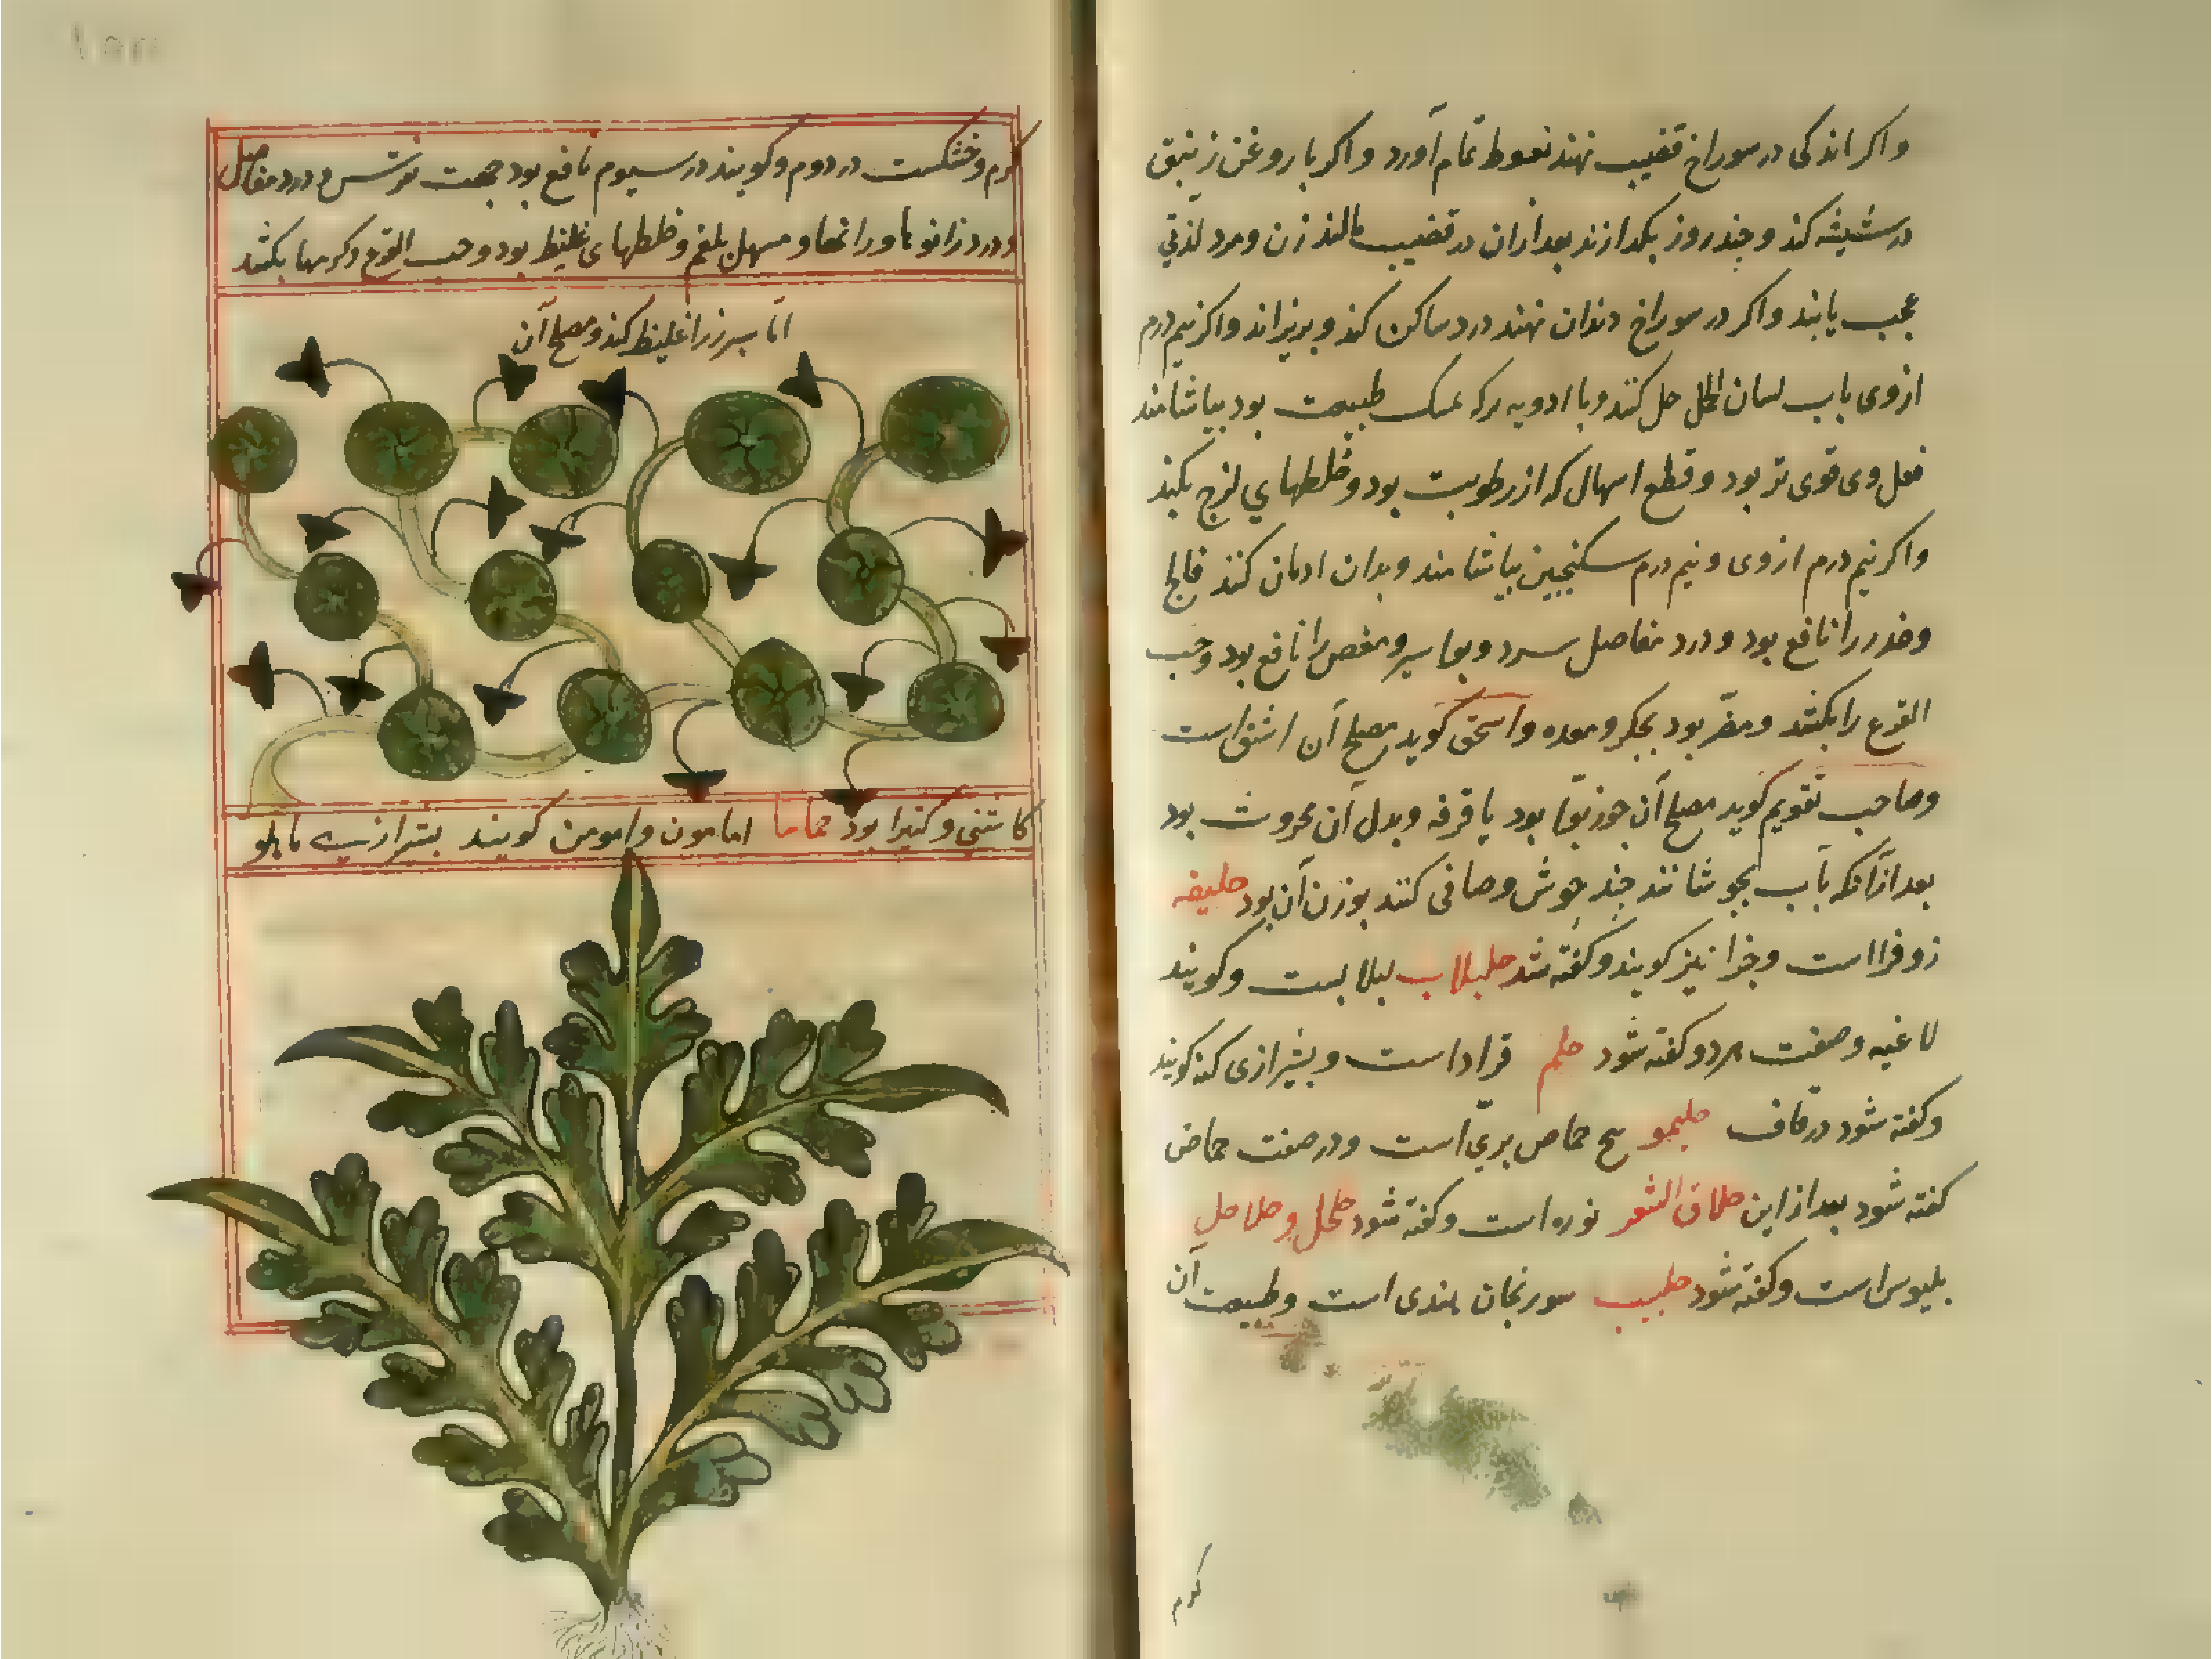 واکر اندکی در سوراخ قضیب نهند نعوظ تمام آورد واکر با روغن زنبق
در شیشه کند و چند روز بکدازند بعد ازان در قضیب مالند زن و مرد لذتی
عجب یابند واکر در سوراخ دندان نهند درد ساکن کند و بریزاند واکر نیم درم
از وی باب لسان الحمل حل کنند و با ادویه که ممسک طبیعت بود بیاشامند
فعل وی قوی تر بود و قطع اسهال که از رطوبت بود و خلطهاي لزج بکند
واکر نیم درم از وی و نیم درم سکنجبین بیاشامند و بدان ادمان کنند فالج
و خدر را نافع بود و درد مفاصل سرد و بواسیر و مغص را نافع بود و حب
القرع را بکشد و مضر بود بجکر و معده و اسحق کوید مصلح آن اشق است
و صاحب تقویم کوید مصلح آن جوز بوّا بود یا قرفه و بدل آن محروث بود
بعد ازآنکه بآب بجوشانند چند جوش و صافی کنند بوزن آن بود حلیفه
زوفرا است و خرا نیز کویند و کفته شد حلبلاب لبلابست و کویند
لاغیه و صفت هردو کفته شود حلم قراد است و بشیرازی کنه کویند
و کفته شود در قاف حلیمو حماض بری است و در صفت حماض
کفته شود بعد از این حلاق الشعر نوره است و کفته شود حلحل و حلاحل
بلبوس است و کفته شود حلبیب سورنجان هندی است و طبیعت آن
کرم
کرم و خشکست در دوم و کویند در سیوم نافع بود جهت نقرس و درد مفاصل
و درد زانو ها و رانها و مسهل بلغم و خلطهای غلیظ بود و حب القرع و کرمها بکشد
امّا سپرز را غلیظ کند و مصلح آن
کاشنی و کتیرا بود حماما امامون و امومن کویند بشیرازی